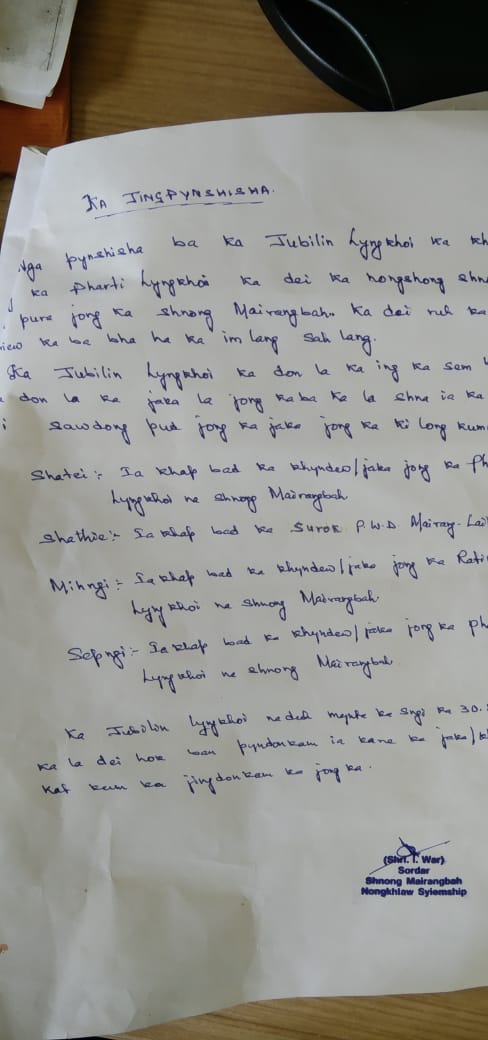 KA JINGPYNSHISHA.
Nga pynshisha ba ka Jubilin Lyngkhoi ka kh
ka Pharti Lyngkhoi ka dei ka nongshong shn
pura jong ka shnong Mairangbah. Ka dei ruh ka
ka ba bha ha ka im lang sah lang.
Ka Jubilin Lyngkhoi ka don la ka ing ka sem
don la ka jaka la jong kaba ka la shna ia ka
sawdong pud jong ka jaka jong ka ki long kum
Shatei :- Ia khap bad ka khyndew/jaka jong ka Ph
Lyngkhoi ne shnong Mairangbah
Shathie:- Ia khap bad ka Surok P.W.D Mairang-Lai
Mihngi :- Ia khap bad ka khyndew/jaka jong ka Rati
Lyngkhoi ne shnong Mairangbah
Sepngi :- Ia khap bad ka khyndew/jaka jong ka ph
Lyngkhoi ne shnong Mairangbah
Ka Jubilin Lyngkhoi naduh mynta ka sngi ka 30.
ka la dei hok ban pyndonkam ia kane ka jaka/k
kat kum ka jingdonkam ka jong ka.
(Shri. I. War)
Sordar
Shnong Mairangbah
Nongkhlaw Syiemship